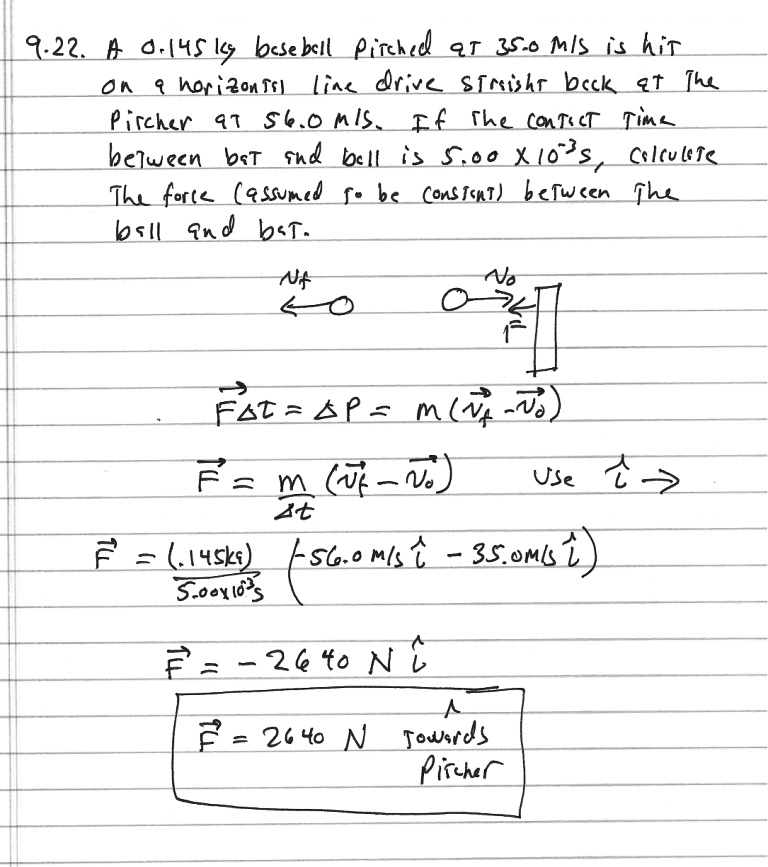 9.22. A 0.145 kg baseball pitched at 35.0 m/s is hit
on a horizontal line drive straight back at the
pitcher at 56.0 m/s. If the contact time
between bat and ball is 5.00 X 10⁻³ s, calculate
the force (assumed to be constant) between the
ball and bat.
v_f v_0
F
F⃗Δt = ΔP = m(v⃗_f - v⃗_0)
F⃗ = m/Δt (v⃗_f - v⃗_0) use î →
F⃗ = (.145kg)/(5.00x10⁻³s) (-56.0 m/s î - 35.0m/s î)
F⃗ = -2640 N î
F⃗ = 2640 N towards
pitcher